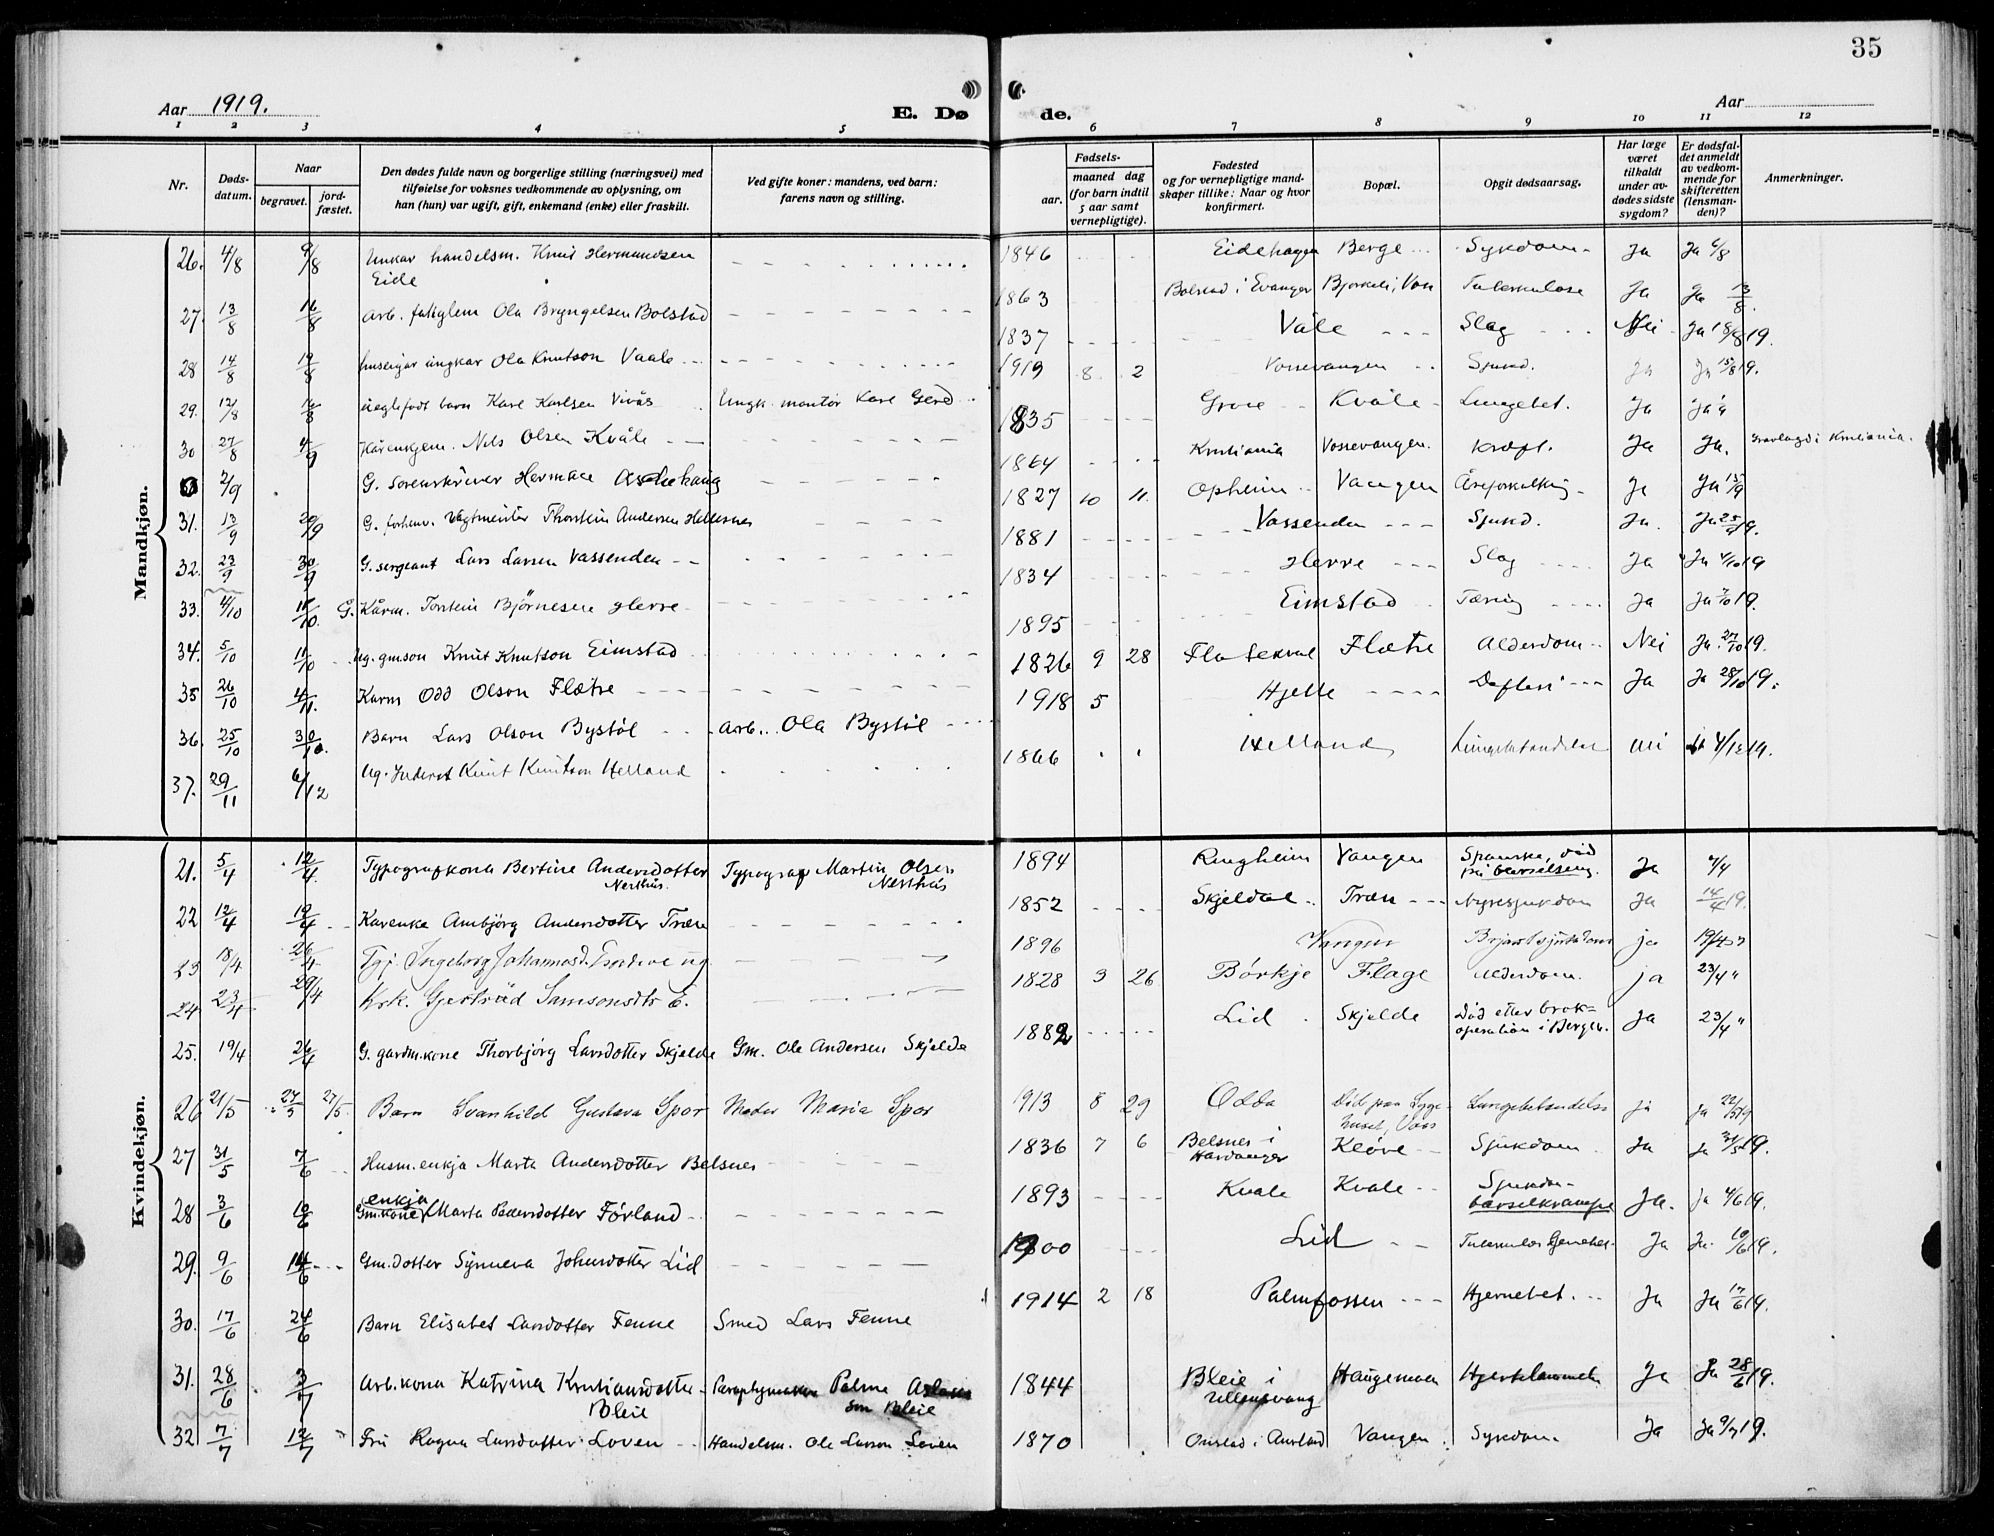 35
Aar 1919.
E. Dø de.
Aar
1 2 3 4 5 6 7 8 9 10 11 12
Nr.
Døds-
datum.
Naar
begravet.
jord-
fæstet.
Den dødes fulde navn og borgerlige stilling (næringsvei) med
tilføielse for voksnes vedkommende av oplysning, om
han (hun) var ugift, gift, enkemand (enke) eller fraskilt.
Ved gifte koner: mandens, ved barn:
farens navn og stilling.
Fødsels-
aar.
maaned dag
(for barn indtil
5 aar samt
vernepligtige).
Fødested
og for vernepligtige mand-
skaper tillike: Naar og hvor
konfirmert.
Bopæl.
Opgit dødsaarsag.
Har læge
været
tilkaldt
under av-
dødes sidste
sygdom?
Er dødsfal-
det anmeldt
av vedkom-
mende for
skifteretten
(lensman-
den)?
Anmerkninger.
Mandkjøn.
26. 4/8 9/8 Unkar handelsm. Knut Hermundsen 1846 Eidehagen Berge Sykdom Ja Ja 6/8
Eide
27. 13/8 16/8 Arb. fatiglem Ola Bryngelsen Bolstad 1863 Bolstad i Evanger Bjorkeli, Voss Tuberkulose Ja Ja 13/8.
28 14/8 19/8 huseigar ungkar Ola Knutson Vaale 1837 Våle Slag Nei Ja 18/8 19.
29. 12/8 16/8 uegtefødt barn Kare Karlsen Vivås Ungk. montør Kare Gerd 1919 8 2 Vossevangen Sjukd. Ja Ja 15/8 19.
30 27/8 4/9 Kårenkjem. Nils Olsen Kvåle 1835 Grove Kvåle Lungebet. Ja Ja
2/9 G. Sorenskriver Herman Aschehaug 1864 Kristiania Vossevangen. Kræft. Ja Ja. Gravlagd i Kristiania.
31. 13/9 20/9 G. forhenv. Vagtmeister Thorstein Andersen Hellesnes 1827 10 11. Opheim Vangen Åreforkalkning Ja Ja 15/9
32. 23/9 30/9 G. sergeant Lars Larsen Vassenden 1881 Vassenden Sjukd. Ja. Ja 25/9 19.
33. 4/10 11/10. G. Kårm. Torstein Bjørnesen Herre 1834 Herre Slag Ja Ja 4/10 19
34. 5/10 11/10 Ug. gmson Knut Knutson Eimstad 1895 Eimstad Tæring Ja Ja 7/10 19.
35 26/10 4/11. Karm Odd Olson Flætre 1826 9 28 Flætre Alderdom Nei Ja. 27/10 19.
36. 25/10 30/10. Barn Lars Olson Bystøl Arb. Ola Bystøl 1918 5 Hjelle Ja Ja 28/10 19.
37. 29/11 6/12 Ug. Inderst Knut Knutson Helland 1866 Helland Lungebetændelse Nei 4/12 19.
Kvindekjøn.
21. 5/4 12/4. Typografkona Bertine Andersdotter Typograf Martin Olsen 1894 Ringheim Vangen Spanske, død Ja 7/4
Nesthus. Nesthus på barselseng.
22 12/4 19/4 Karenke Ambjørg Andersdotter Træn 1852 Skjeldal Træn Nyresjukdom Ja 14/4 19.
23 18/4 26/4 Ingeborg Johannesd. ug 1896 Vangen Brjostsjukdom ja 19/4 "
24 23/4 29/4 Krk. Gjertrud Samsonsdtr E. 1828 3 26 Børkje Flage Alderdom. ja 23/4 "
25. 19/4 26/4 G. gardm.kone Thorbjørg Larsdotter Skjelde Gm. Ole Andersen Skjelde 1882 Lid Skjelde Død etter brok- Ja 23/4 "
operation i Bergen.
26 21/5 27/5 27/5. Barn Svanhild Gustava Spor Moder Maria Spor 1913 8 29 Odda Død paa Syge- Lungebetændelse ja ja 22/5 19
huset, Voss
27 31/5 7/6 Husm.enkja Marta Andersdotter Belsnes 1836 7 6 Belsnes i Kløve Sjukdom Ja Ja 31/5 19.
Hardanger
28 3/6 10/6 enkja 1893 Kvale Kvale Sjukdom Ja. Ja 4/6 19.
Gm.kone Marta Pedersdotter Førland barselkrampe
29. 9/6 14/6 Gm.dotter Synneva Johnsdotter Lid 1900 Lid Ja Ja. 10/6 19.
30. 17/6 24/6 Barn Elisabet Larsdotter Fenne Smed Lars Fenne 1914 2 18 Palmfossen Hjernebet. Ja Ja 17/6 19.
31. 28/6 3/7 Arb.kona Katrina Kristiansdotter Palme 1844 Bleie i Haugemoen Hjertelammelse Ja Ja 28/6 19.
Bleie son Bleie Ullensvang
32 7/7 12/7 Fru Ragna Larsdotter Loven Handelsm. Ole Larson Loven 1870 Vangen Sykdom. Ja Ja 9/7 19.